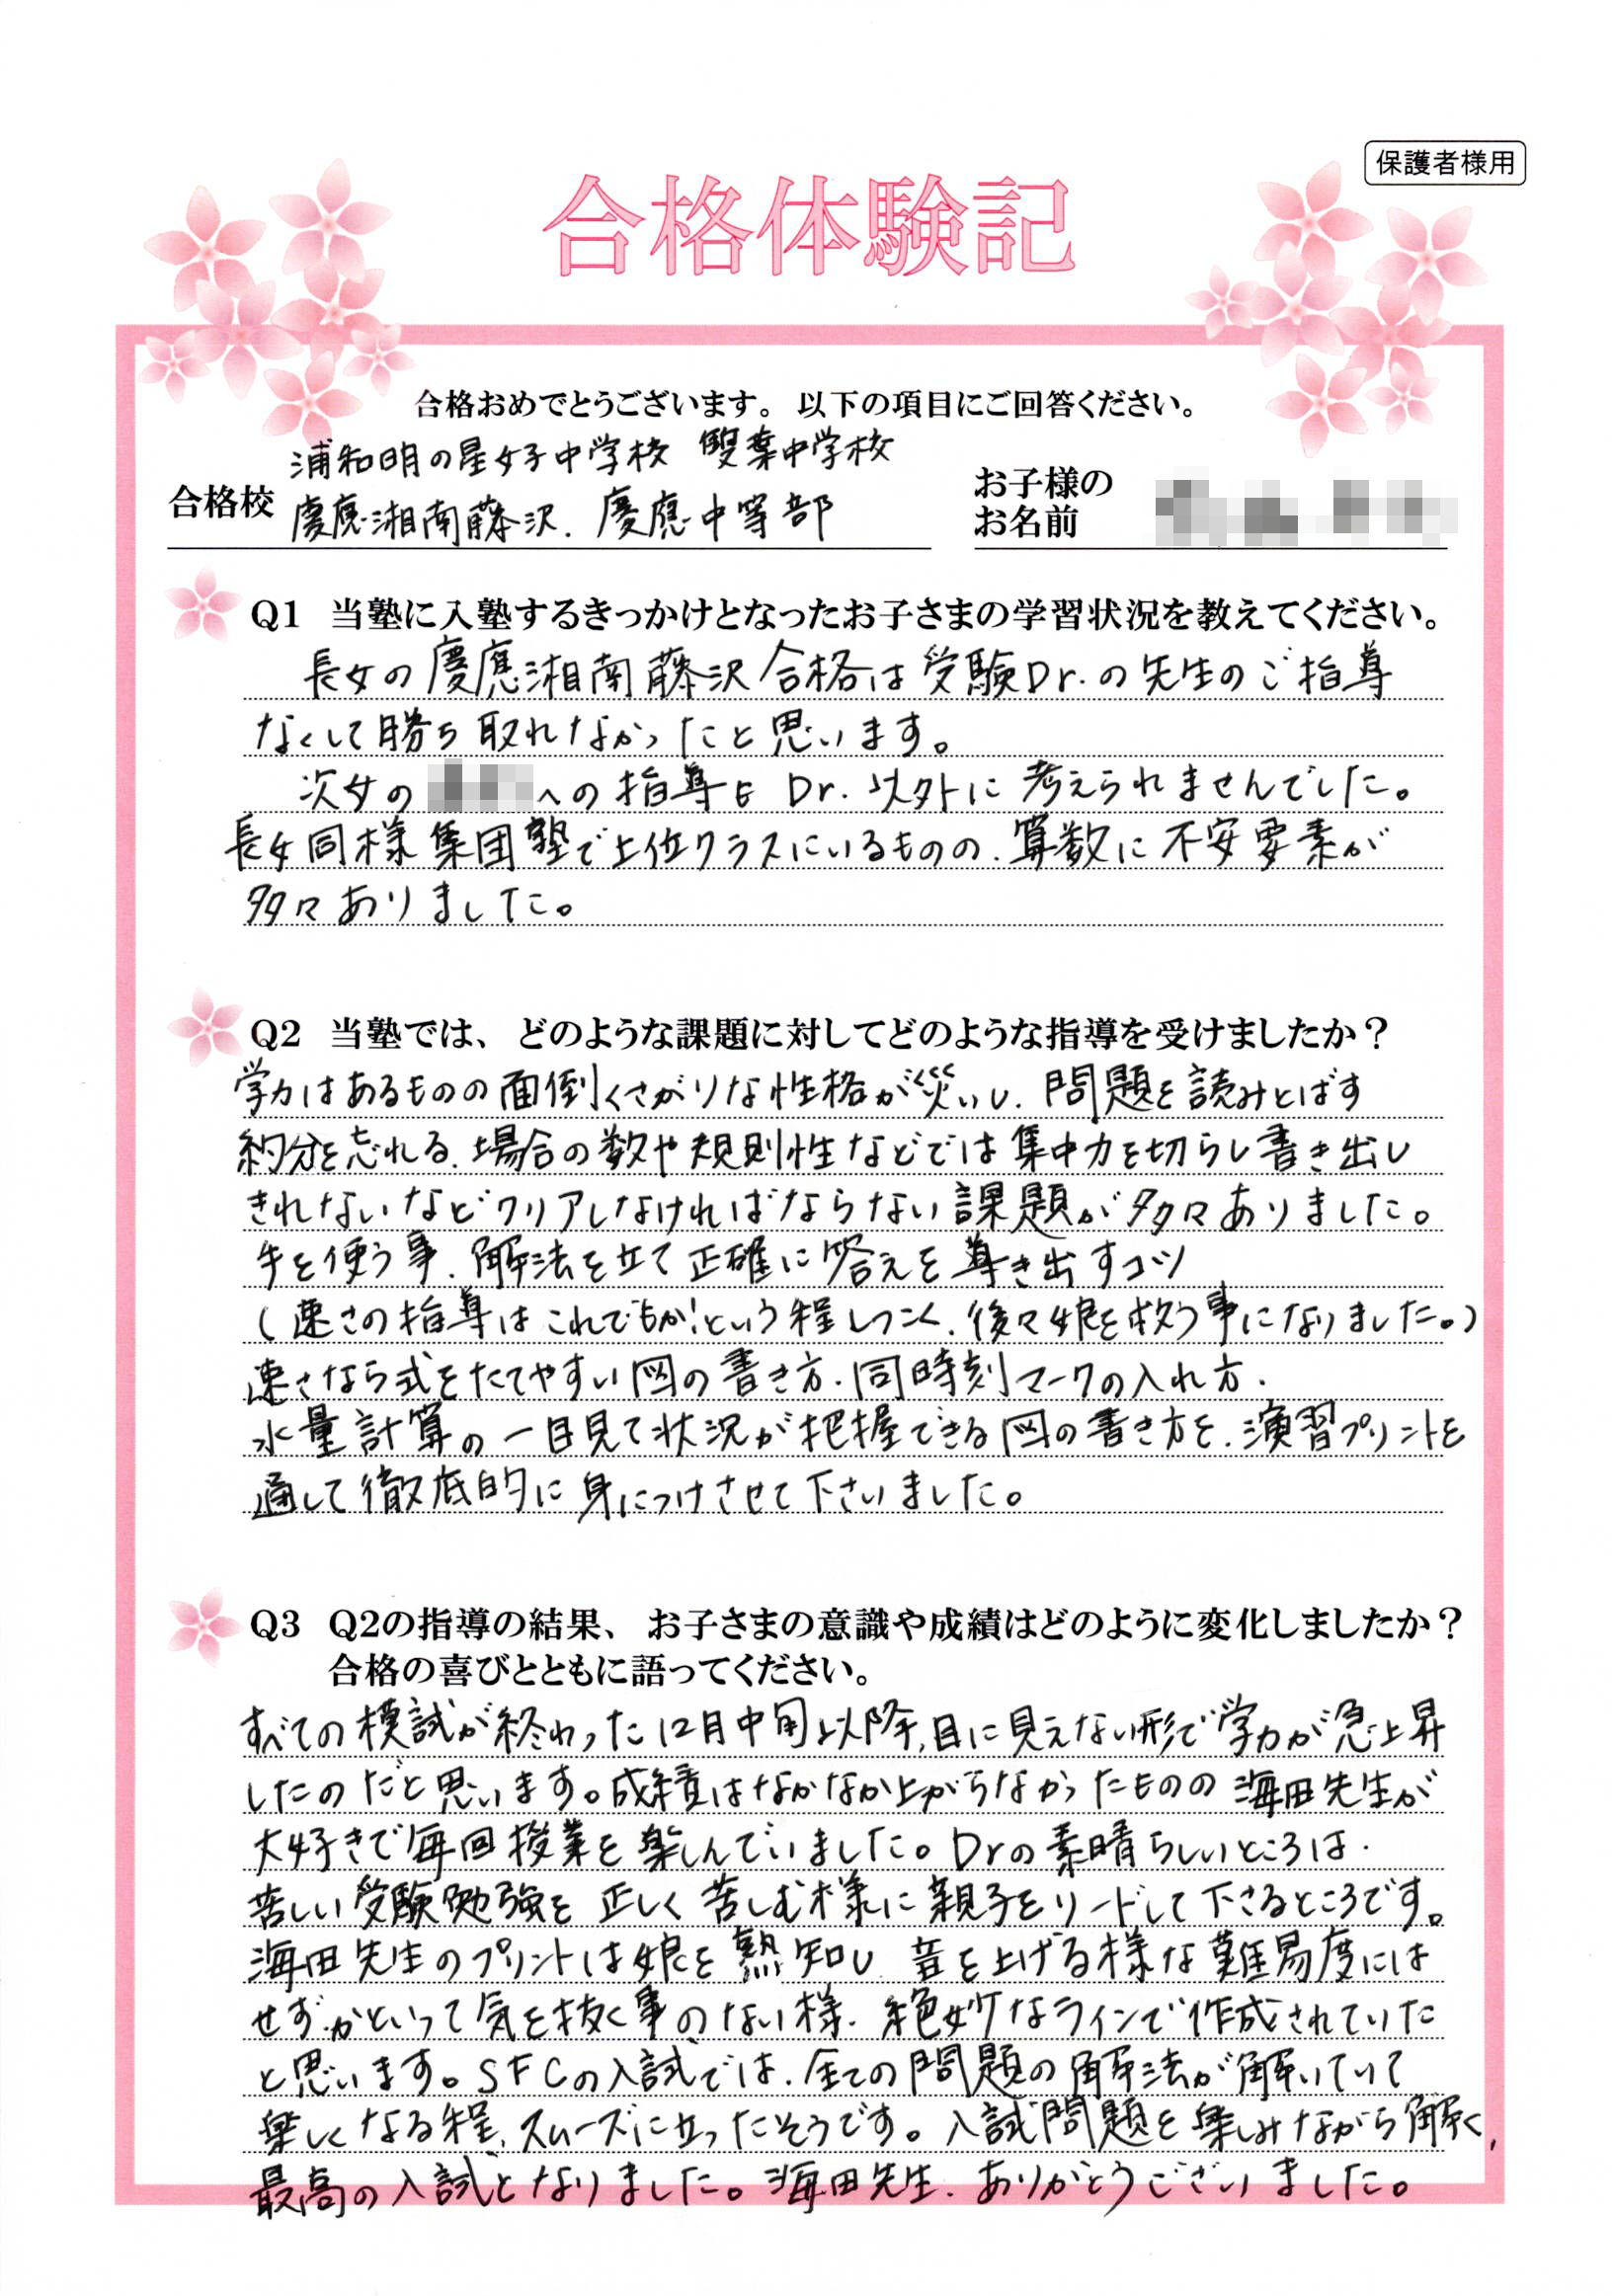 保護者様用
合格体験記
合格おめでとうございます。以下の項目にご回答ください。
合格校
浦和明の星女子中学校 雙葉中学校
慶應湘南藤沢、慶應中等部
お子様の
お名前
Q1 当塾に入塾するきっかけとなったお子さまの学習状況を教えてください。
長女の慶應湘南藤沢合格は受験Dr.の先生のご指導
なくして勝ち取れなかったと思います。
次女の への指導も Dr.以外に考えられませんでした。
長女同様集団塾で上位クラスにいるものの、算数に不安要素が
多々ありました。
Q2 当塾では、どのような課題に対してどのような指導を受けましたか?
学力はあるものの面倒くさがりな性格が災いし、問題を読みとばす
約分を忘れる、場合の数や規則性などでは集中力を切らし書き出し
きれないなどクリアしなければならない課題が多々ありました。
手を使う事、解法を立て正確に答えを導き出すコツ
(速さの指導はこれでもか!という程しつこく、後々娘を救う事になりました。)
速さなら式をたてやすい図の書き方、同時刻マークの入れ方、
水量計算の一目見て状況が把握できる図の書き方を、演習プリントを
通して徹底的に身につけさせて下さいました。
Q3 Q2の指導の結果、お子さまの意識や成績はどのように変化しましたか?
合格の喜びとともに語ってください。
すべての模試が終わった12月中旬以降、目に見えない形で学力が急上昇
したのだと思います。成績はなかなか上がらなかったものの海田先生が
大好きで毎回授業を楽しんでいました。Drの素晴らしいところは、
苦しい受験勉強を正しく苦しむ様に親子をリードして下さるところです。
海田先生のプリントは娘を熟知し、音を上げる様な難易度には
せず、かといって気を抜く事のない様、絶妙なラインで作成されていた
と思います。SFCの入試では、全ての問題の解法が解いていて
楽しくなる程、スムーズに立ったそうです。入試問題を楽しみながら解く、
最高の入試となりました。海田先生、ありがとうございました。